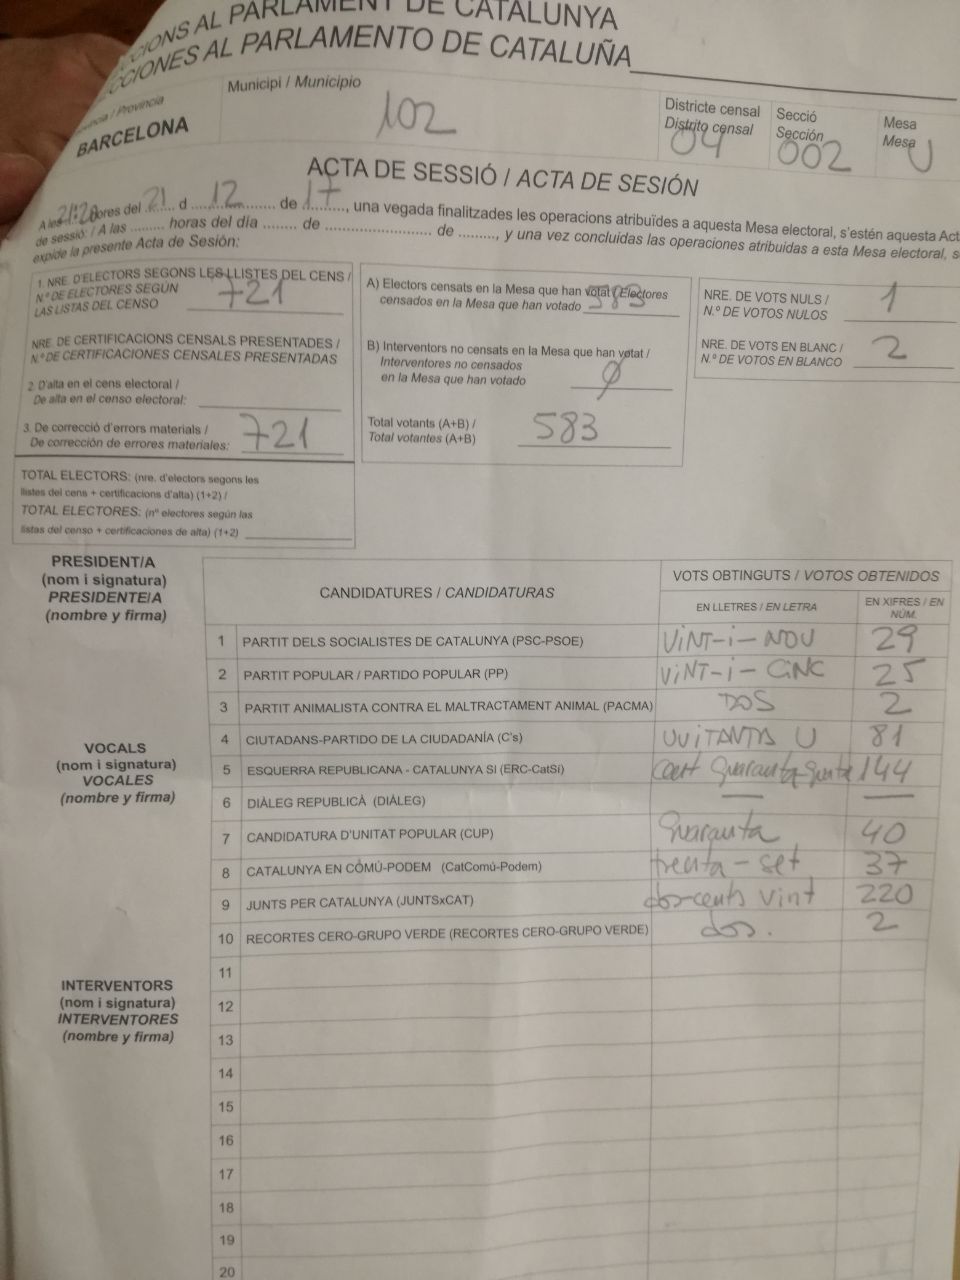 CIONS AL PARLAMENT DE CATALUNYA
CCIONES AL PARLAMENTO DE CATALUÑA
Provincia
BARCELONA
Municipi / Municipio
102
Districte censal
Distrito censal
04
Secció
Sección
002
Mesa
Mesa
U
ACTA DE SESSIÓ / ACTA DE SESIÓN
A les 21:20 hores del 21 d 12 de 17, una vegada finalitzades les operacions atribuïdes a aquesta Mesa electoral, s'estén aquesta Act
de sessió: / A las ......... horas del día ........ de ........................... de ........., y una vez concluidas las operaciones atribuidas a esta Mesa electoral, s
expide la presente Acta de Sesión:
1. NRE. D'ELECTORS SEGONS LES LLISTES DEL CENS /
N.º DE ELECTORES SEGÚN
LAS LISTAS DEL CENSO
721
NRE. DE CERTIFICACIONS CENSALS PRESENTADES /
N.º DE CERTIFICACIONES CENSALES PRESENTADAS
2. D'alta en el cens electoral /
De alta en el censo electoral:
3. De correcció d'errors materials /
De corrección de errores materiales: 721
TOTAL ELECTORS: (nre. d'electors segons les
llistes del cens + certificacions d'alta) (1+2) /
TOTAL ELECTORES: (nº electores según las
listas del censo + certificaciones de alta) (1+2)
A) Electors censats en la Mesa que han votat / Electores
censados en la Mesa que han votado 583
B) Interventors no censats en la Mesa que han votat /
Interventores no censados
en la Mesa que han votado
Ø
Total votants (A+B) /
Total votantes (A+B)
583
NRE. DE VOTS NULS /
N.º DE VOTOS NULOS
1
NRE. DE VOTS EN BLANC /
N.º DE VOTOS EN BLANCO
2
PRESIDENT/A
(nom i signatura)
PRESIDENTE/A
(nombre y firma)
VOCALS
(nom i signatura)
VOCALES
(nombre y firma)
INTERVENTORS
(nom i signatura)
INTERVENTORES
(nombre y firma)
CANDIDATURES / CANDIDATURAS
VOTS OBTINGUTS / VOTOS OBTENIDOS
EN LLETRES / EN LETRA
EN XIFRES / EN NÚM.
1 PARTIT DELS SOCIALISTES DE CATALUNYA (PSC-PSOE) VINT-i-NOU 29
2 PARTIT POPULAR / PARTIDO POPULAR (PP) VINT-i-CINC 25
3 PARTIT ANIMALISTA CONTRA EL MALTRACTAMENT ANIMAL (PACMA) DOS 2
4 CIUTADANS-PARTIDO DE LA CIUDADANÍA (C's) VUITANTA U 81
5 ESQUERRA REPUBLICANA - CATALUNYA SI (ERC-CatSí) 144
6 DIÀLEG REPUBLICÀ (DIÀLEG) — —
7 CANDIDATURA D'UNITAT POPULAR (CUP) Quaranta 40
8 CATALUNYA EN COMÚ-PODEM (CatComú-Podem) trenta-set 37
9 JUNTS PER CATALUNYA (JUNTSxCAT) dos-cents vint 220
10 RECORTES CERO-GRUPO VERDE (RECORTES CERO-GRUPO VERDE) dos. 2
11
12
13
14
15
16
17
18
19
20